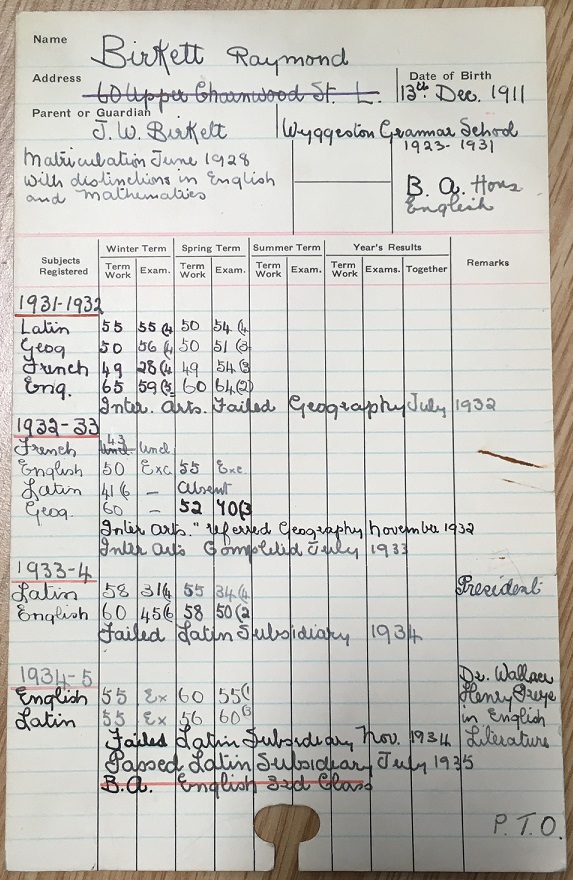 Name Birkett Raymond
Address 60 Upper Charnwood St. L. Date of Birth 13th Dec. 1911
Parent or Guardian J. W. Birkett Wyggeston Grammar School
1923-1931
Matriculation June 1928
with distinctions in English
and Mathematics
B. A. Hons
English
Subjects Registered Winter Term Spring Term Summer Term Year's Results Remarks
Term Work Exam. Term Work Exam. Term Work Exam. Term Work Exams. Together
1931-1932
Latin 55 55 (4 50 54 (4
Geog 50 56 (4 50 51 (3
French 49 28 (4 49 54 (3
Eng. 65 59 (3 60 64 (2)
Inter. Arts. Failed Geography July 1932
1932-33
French 43 Uncl
English 50 Exc 55 Exc
Latin 41 (6 – Absent
Geog. 60 – 52 40 (3
Inter Arts. "referred Geography November 1932
Inter Arts Completed July 1933
1933-4
Latin 58 31 (4 55 34 (4 President
English 60 45 (6 58 50 (2
Failed Latin Subsidiary 1934
1934-5 Dr. Wallace
English 55 Ex 60 55 (1 Henry
Latin 55 Ex 56 60 (3 in English
Failed Latin Subsidiary Nov. 1934 Literature
Passed Latin Subsidiary July 1935
B.A. English 3rd Class
P.T.O.